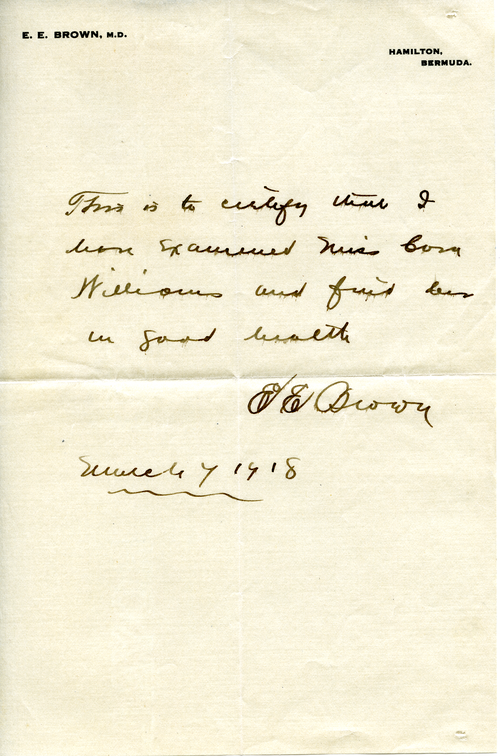 E. E. BROWN, M.D.
HAMILTON,
BERMUDA.
This is to certify that I
have examined Miss Cora
Williams and find her
in good health
E E Brown
March 7 1918